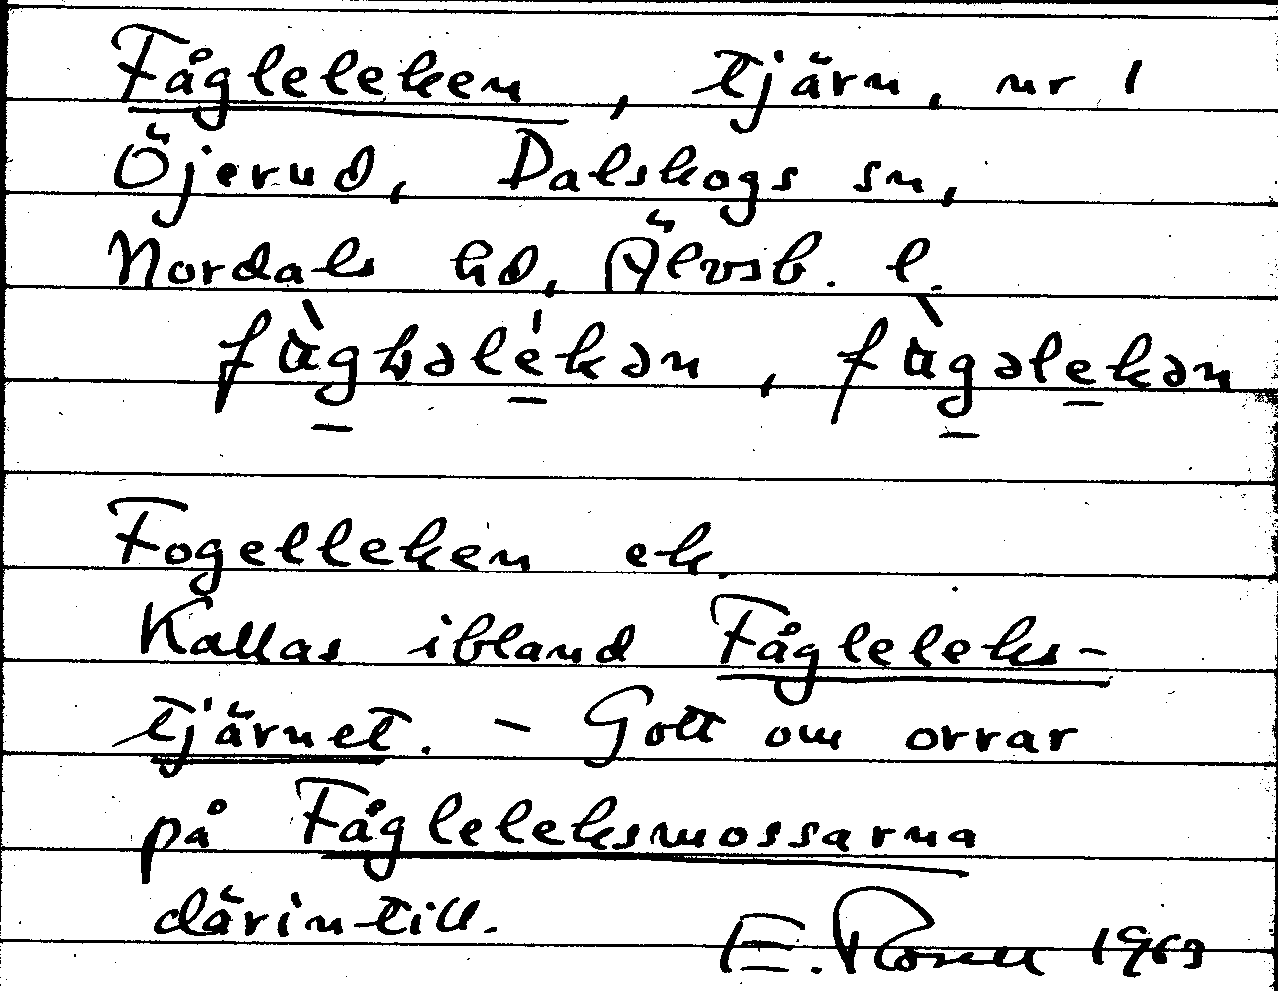 Fågleleken, tjärn, nr 1
Öjerud, Dalskogs sn,
Nordals hd, Älvsb. l.
Fogelleken ek.
Kallas ibland Fågleleks-
tjärnet. - Gott om orrar
på Fågleleksmossarna
därintill.
E. Rosell 1963